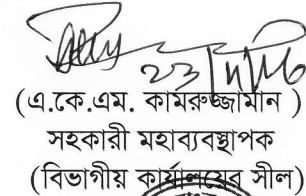 (এ.কে.এম. কামরুজ্জামান )
সহকারী মহাব্যবস্থাপক
(বিভাগীয় কার্যালয়ের সীল)